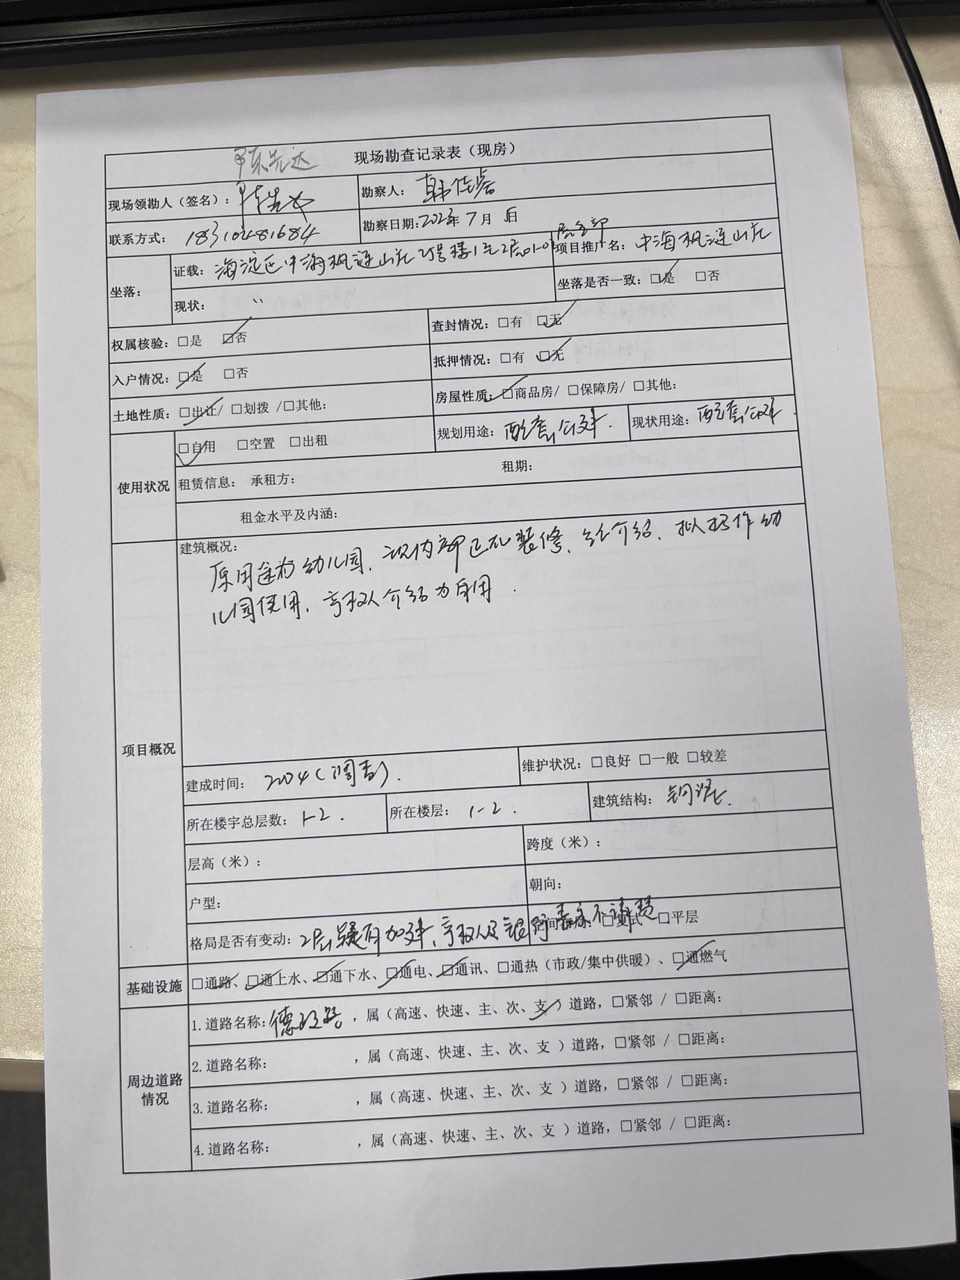 陈先达 现场勘查记录表（现房）
现场领勘人（签名）： 勘察人：韩佳睿
联系方式：18310481684 勘察日期:2023年7月 日
坐落： 证载：海淀区中海枫涟山庄2号楼1至2层01-01居全部 项目推广名：中海枫涟山庄
现状：〃 坐落是否一致：☑是 □否
权属核验：□是 ☑否 查封情况：□有 ☑无
入户情况：☑是 □否 抵押情况：□有 ☑无
土地性质：☑出让/ □划拨 /□其他： 房屋性质：☑商品房/ □保障房/ □其他：
使用状况 ☑自用 □空置 □出租 规划用途：配套公建. 现状用途：配套公建.
租赁信息：承租方： 租期：
租金水平及内涵：
项目概况 建筑概况：
原用途为幼儿园，现内部正在装修，经介绍，拟招作幼
儿园使用，产权人介绍为自用.
建成时间：2004(调查). 维护状况：□良好 □一般 □较差
所在楼宇总层数：1-2. 所在楼层：1-2. 建筑结构：钢混.
层高（米）： 跨度（米）：
户型： 朝向：
格局是否有变动：2层疑有加建，产权人及 □复式 □平层
基础设施 ☑通路、☑通上水、☑通下水、☑通电、☑通讯、□通热（市政/集中供暖）、☑通燃气
周边道路情况 1.道路名称：德政路，属（高速、快速、主、次、支✓）道路，□紧邻 / □距离：
2.道路名称： ，属（高速、快速、主、次、支 ）道路，□紧邻 / □距离：
3.道路名称： ，属（高速、快速、主、次、支 ）道路，□紧邻 / □距离：
4.道路名称： ，属（高速、快速、主、次、支 ）道路，□紧邻 / □距离：